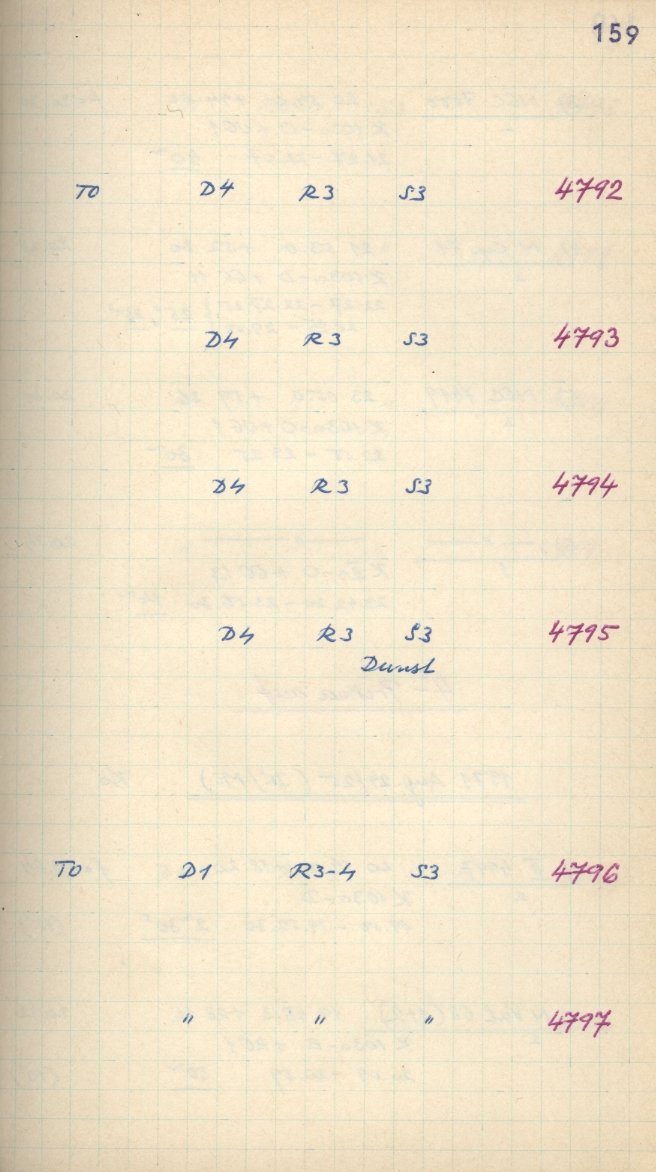 159
TO D4 R3 S3 4792
D4 R3 S3 4793
D4 R3 S3 4794
D4 R3 S3 4795
Dunst
TO D1 R3-4 S3 4796
" " " 4797